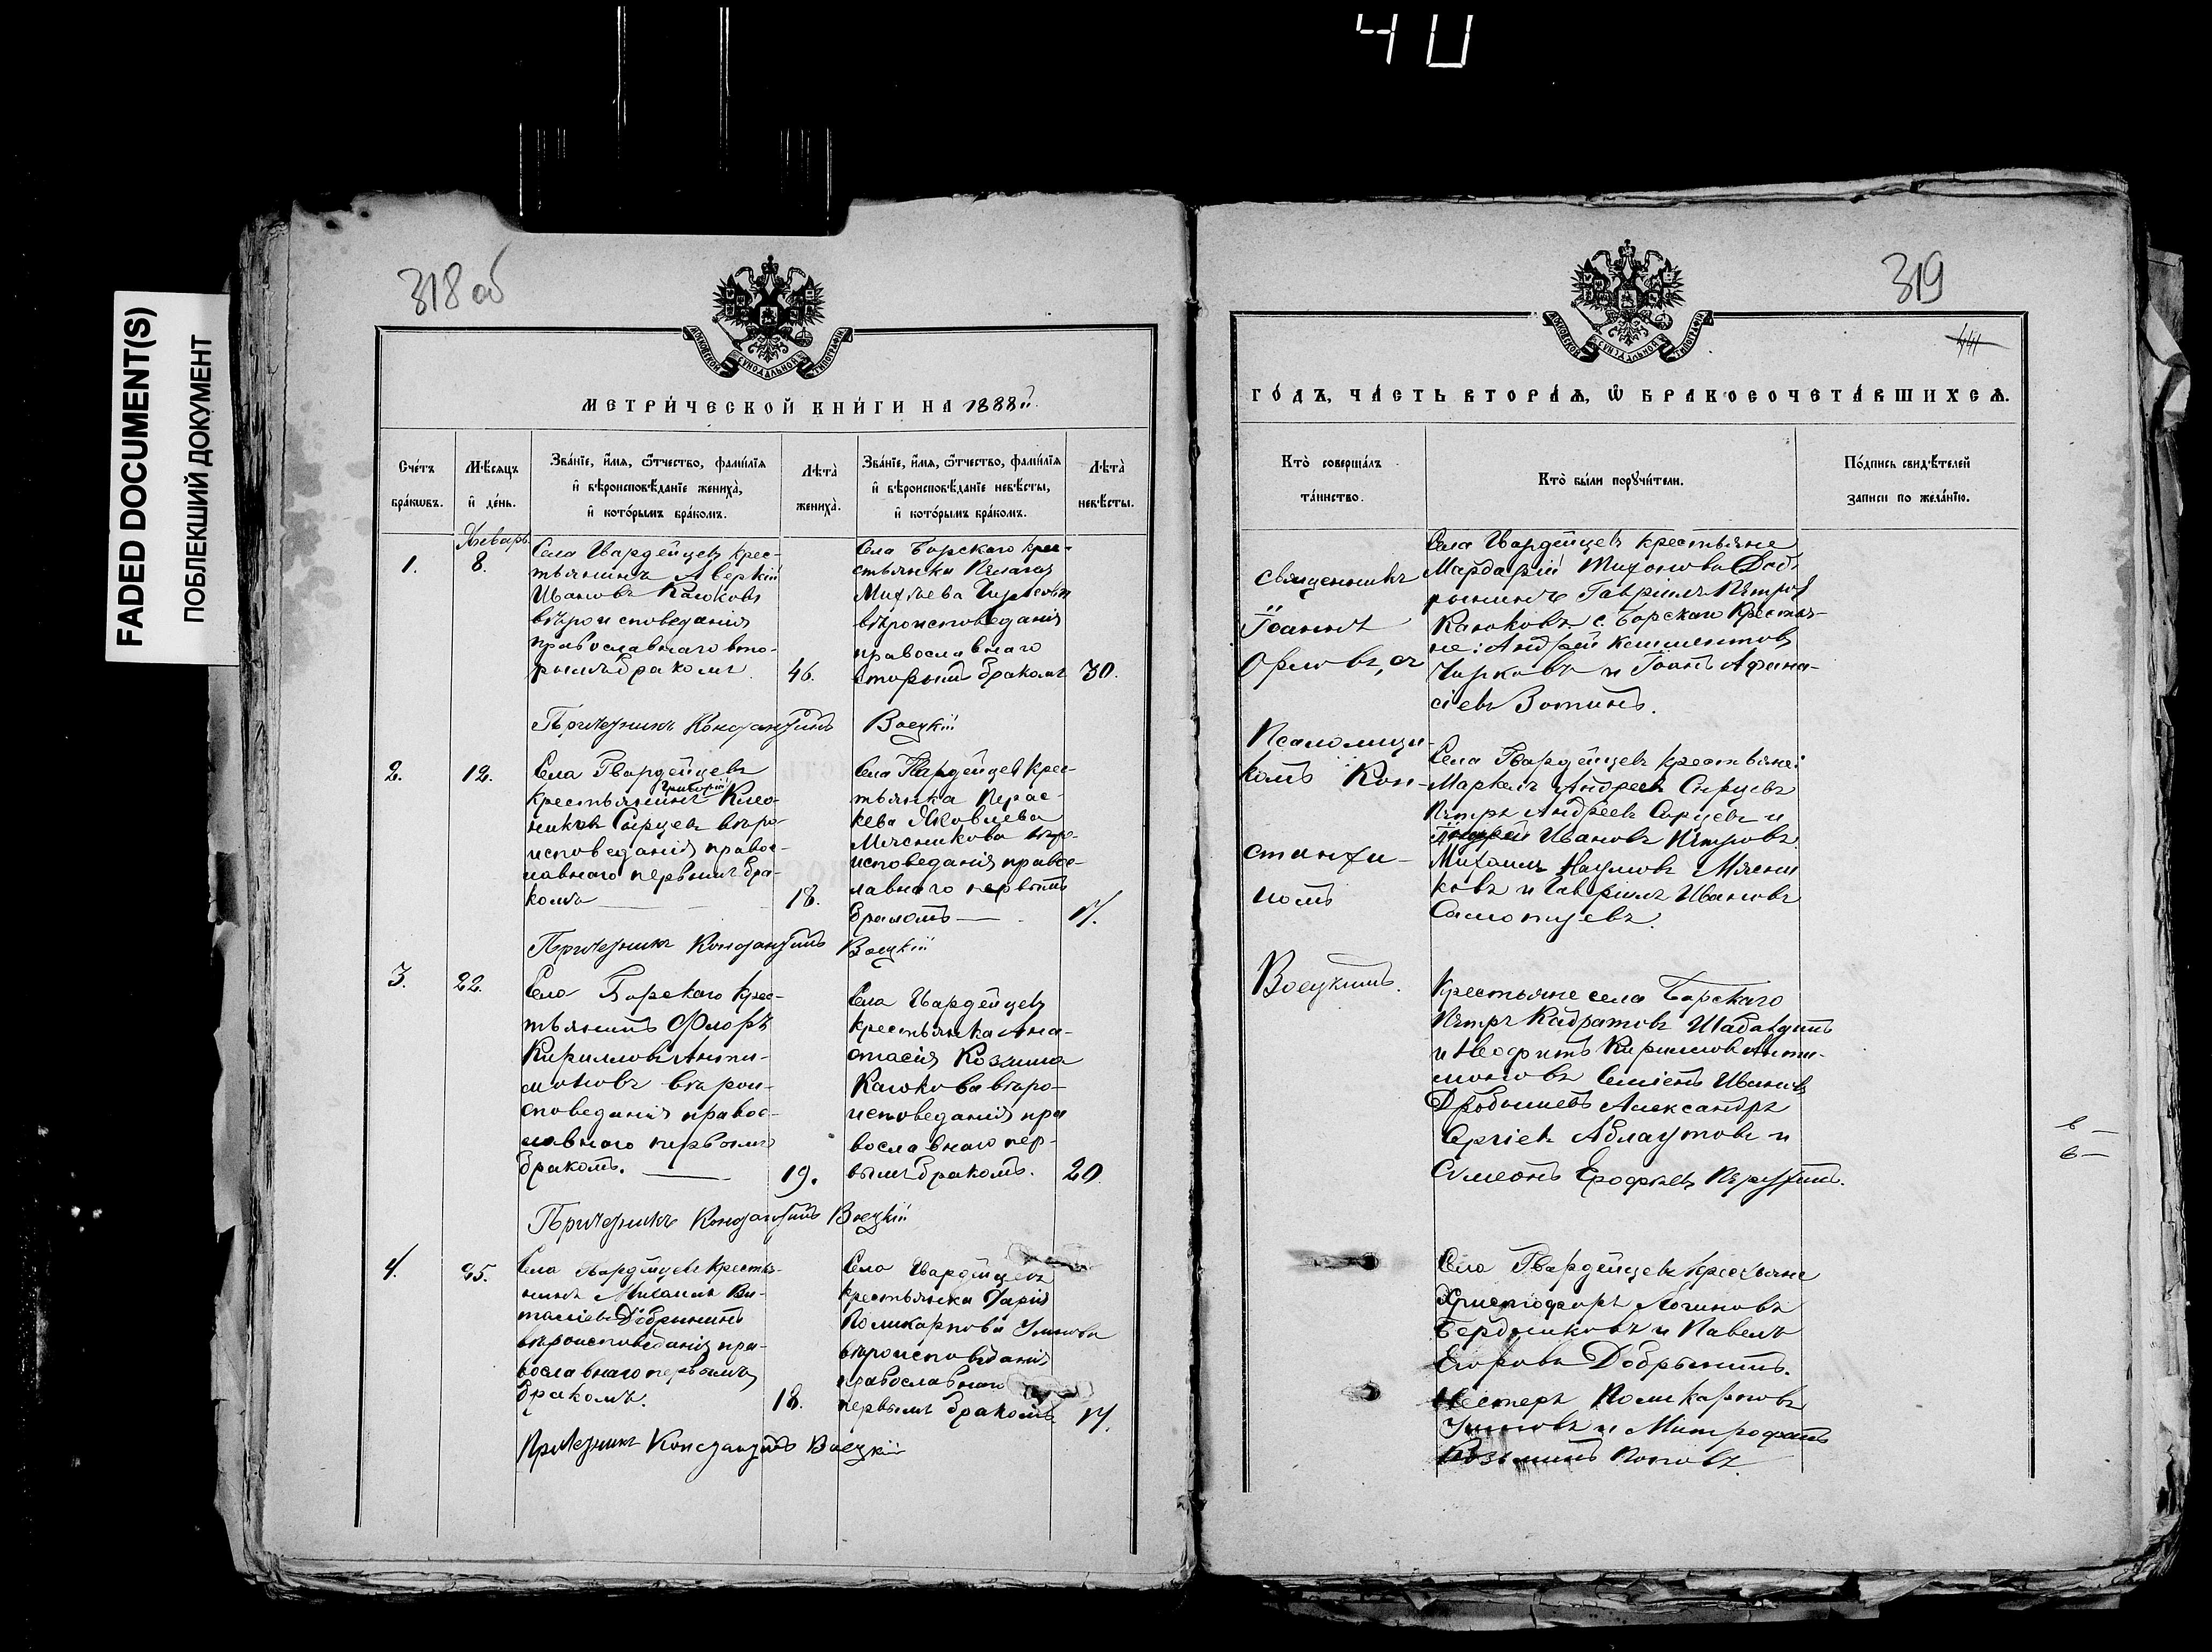 40
FADED DOCUMENT(S)
ПОБЛЕКШИЙ ДОКУМЕНТ
318 об
МОСКОВСКОЙ СУНОДАЛЬНОЙ ТИПОГРАФІИ
МЕТРИ́ЧЕСКОЙ КНИ́ГИ НА 1888й
Сче́тъ бра́кѡвъ.
Мѣ́сяцъ и҆ де́нь.
Зва́нїе, и҆́мѧ, ѻ҆́тчество, фами́лїѧ
и҆ вѣроисповѣ́данїе жениха̀,
и҆ кото́рымъ бра́комъ.
Лѣта̀ жениха̀.
Зва́нїе, и҆́мѧ, ѻ҆́тчество, фами́лїѧ
и҆ вѣроисповѣ́данїе невѣ́сты,
и҆ кото́рымъ бра́комъ.
Лѣта̀ невѣ́сты.
1.
Январь
8.
Села Гвардейцевъ крес-
тьянинъ Аверкій
Ивановъ Канюковъ
вѣроисповеданія
православнаго вто-
рымъ бракомъ
46.
Села Борскаго кре-
стьянка Пелагея
Михѣева
вѣроисповеданія
православнаго
вторымъ бракомъ
30.
Причетникъ Константинъ Воецкій
2.
12.
Села Гвардейцевъ
Григорій
крестьянинъ Клео-
никовъ Сырцевъ вѣро-
исповеданія правос-
лавнаго первымъ бра-
комъ
18.
Села Гвардейцевъ крес-
тьянка Парас-
кева Яковлева
Мясникова вѣро-
исповеданія правос-
лавнаго первымъ
бракомъ
17.
Причетникъ Константинъ Воецкій
3.
22.
Села Борскаго крес-
тьянинъ Флоръ
Кирилловъ Анти-
моновъ вѣрои-
споведанія правос-
лавнаго первымъ
бракомъ.
19.
Села Гвардейцевъ
крестьянка Ана-
стасія Козмина
Канюкова вѣро-
исповеданія пра
вославнаго пер-
вымъ бракомъ.
20.
Причетникъ Константинъ Воецкій
4.
25.
Села Гвардейцевъ крестья-
нинъ Михаилъ Ви-
таліевъ Добрынинъ
вѣроисповѣданія пра-
вославнаго первымъ
бракомъ.
18.
Села Гвардейцевъ
крестьянка Дарія
Поликарпова Уткова
вѣроисповѣданія
православнаго
первымъ бракомъ
17.
Причетникъ Константинъ Воецкій
319
МОСКОВСКОЙ СУНОДАЛЬНОЙ ТИПОГРАФІИ
441
ГО́ДЪ, ЧА́СТЬ ВТОРА́Ѧ, Ѡ҆ БРАКОСОЧЕТА́ВШИХСѦ.
Кто̀ соверша́лъ та́инство.
Кто̀ бы́ли порꙋчи́тели.
По́дпись свидѣ́телей
записи по жела́нїю.
священникъ
Іоаннъ
Орловъ, съ
Псаломщи-
комъ Кон-
станти-
номъ
Воецкимъ.
Села Гвардейцевъ крестьяне
Мардарій Тихоновъ Доб-
рынинъ Гавріилъ Петров
Канюковъ с. Борскаго Крестья-
не: Андрей Климентовъ
Чирковъ и Іоаннъ Афана-
сіевъ Зотинъ.
Села Гвардейцевъ крестьяне:
Маркелъ Андреевъ Сырцевъ
Петръ Андреевъ Сырцевъ и
Андрей Ивановъ Петровъ.
Михаилъ Наумовъ Мясни
ковъ и Гавріилъ Ивановъ
Крестьяне села Борскаго
Петръ Кодратовъ Шабалдинъ
и Неофитъ Кирилловъ Анти-
моновъ Семіонъ Ивановъ
Дробышевъ Александръ
Сергіевъ Аблаутовъ и
Симеонъ Ерофѣевъ
Села Гвардейцевъ крестьяне
Христофоръ Логиновъ
Бердниковъ и Павелъ
Егоровъ Добрынинъ.
Нестеръ Поликарповъ
Утковъ и Митрофанъ
Козьминъ Поповъ.